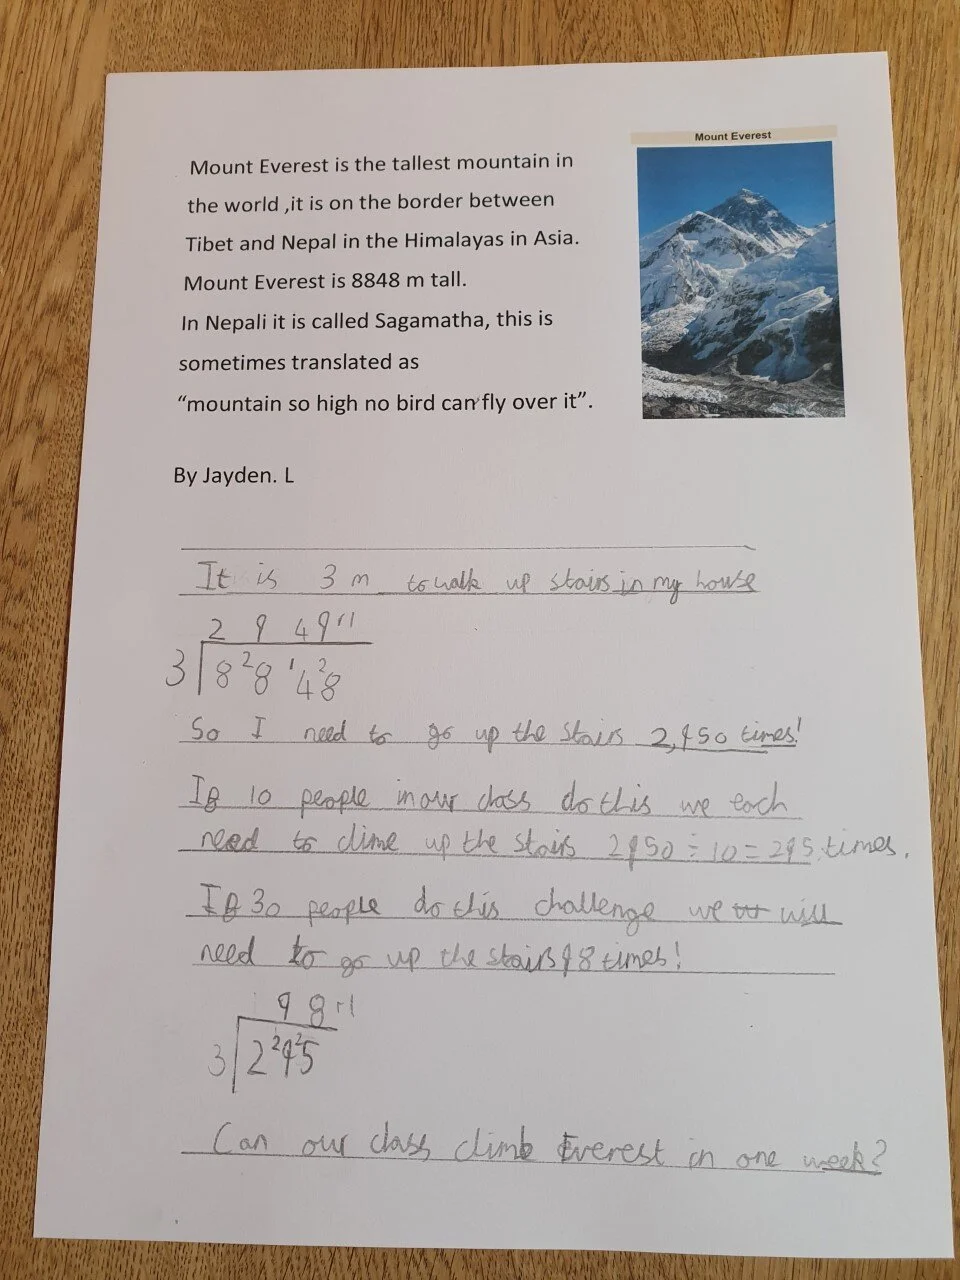 Mount Everest
Mount Everest is the tallest mountain in
the world ,it is on the border between
Tibet and Nepal in the Himalayas in Asia.
Mount Everest is 8848 m tall.
In Nepali it is called Sagamatha, this is
sometimes translated as
“mountain so high no bird can fly over it”.
By Jayden. L
It is 3 m to walk up stairs in my house
2 9 4 9 r1
3 8 2 8 1 4 2 8
So I need to go up the stairs 2,950 times!
If 10 people in our class do this we each
need to clime up the stairs 2950 ÷ 10 = 295 times.
If 30 people do this challenge we will
need to go up the stairs 98 times!
9 8 r1
3 2 2 9 2 5
Can our class climb Everest in one week?